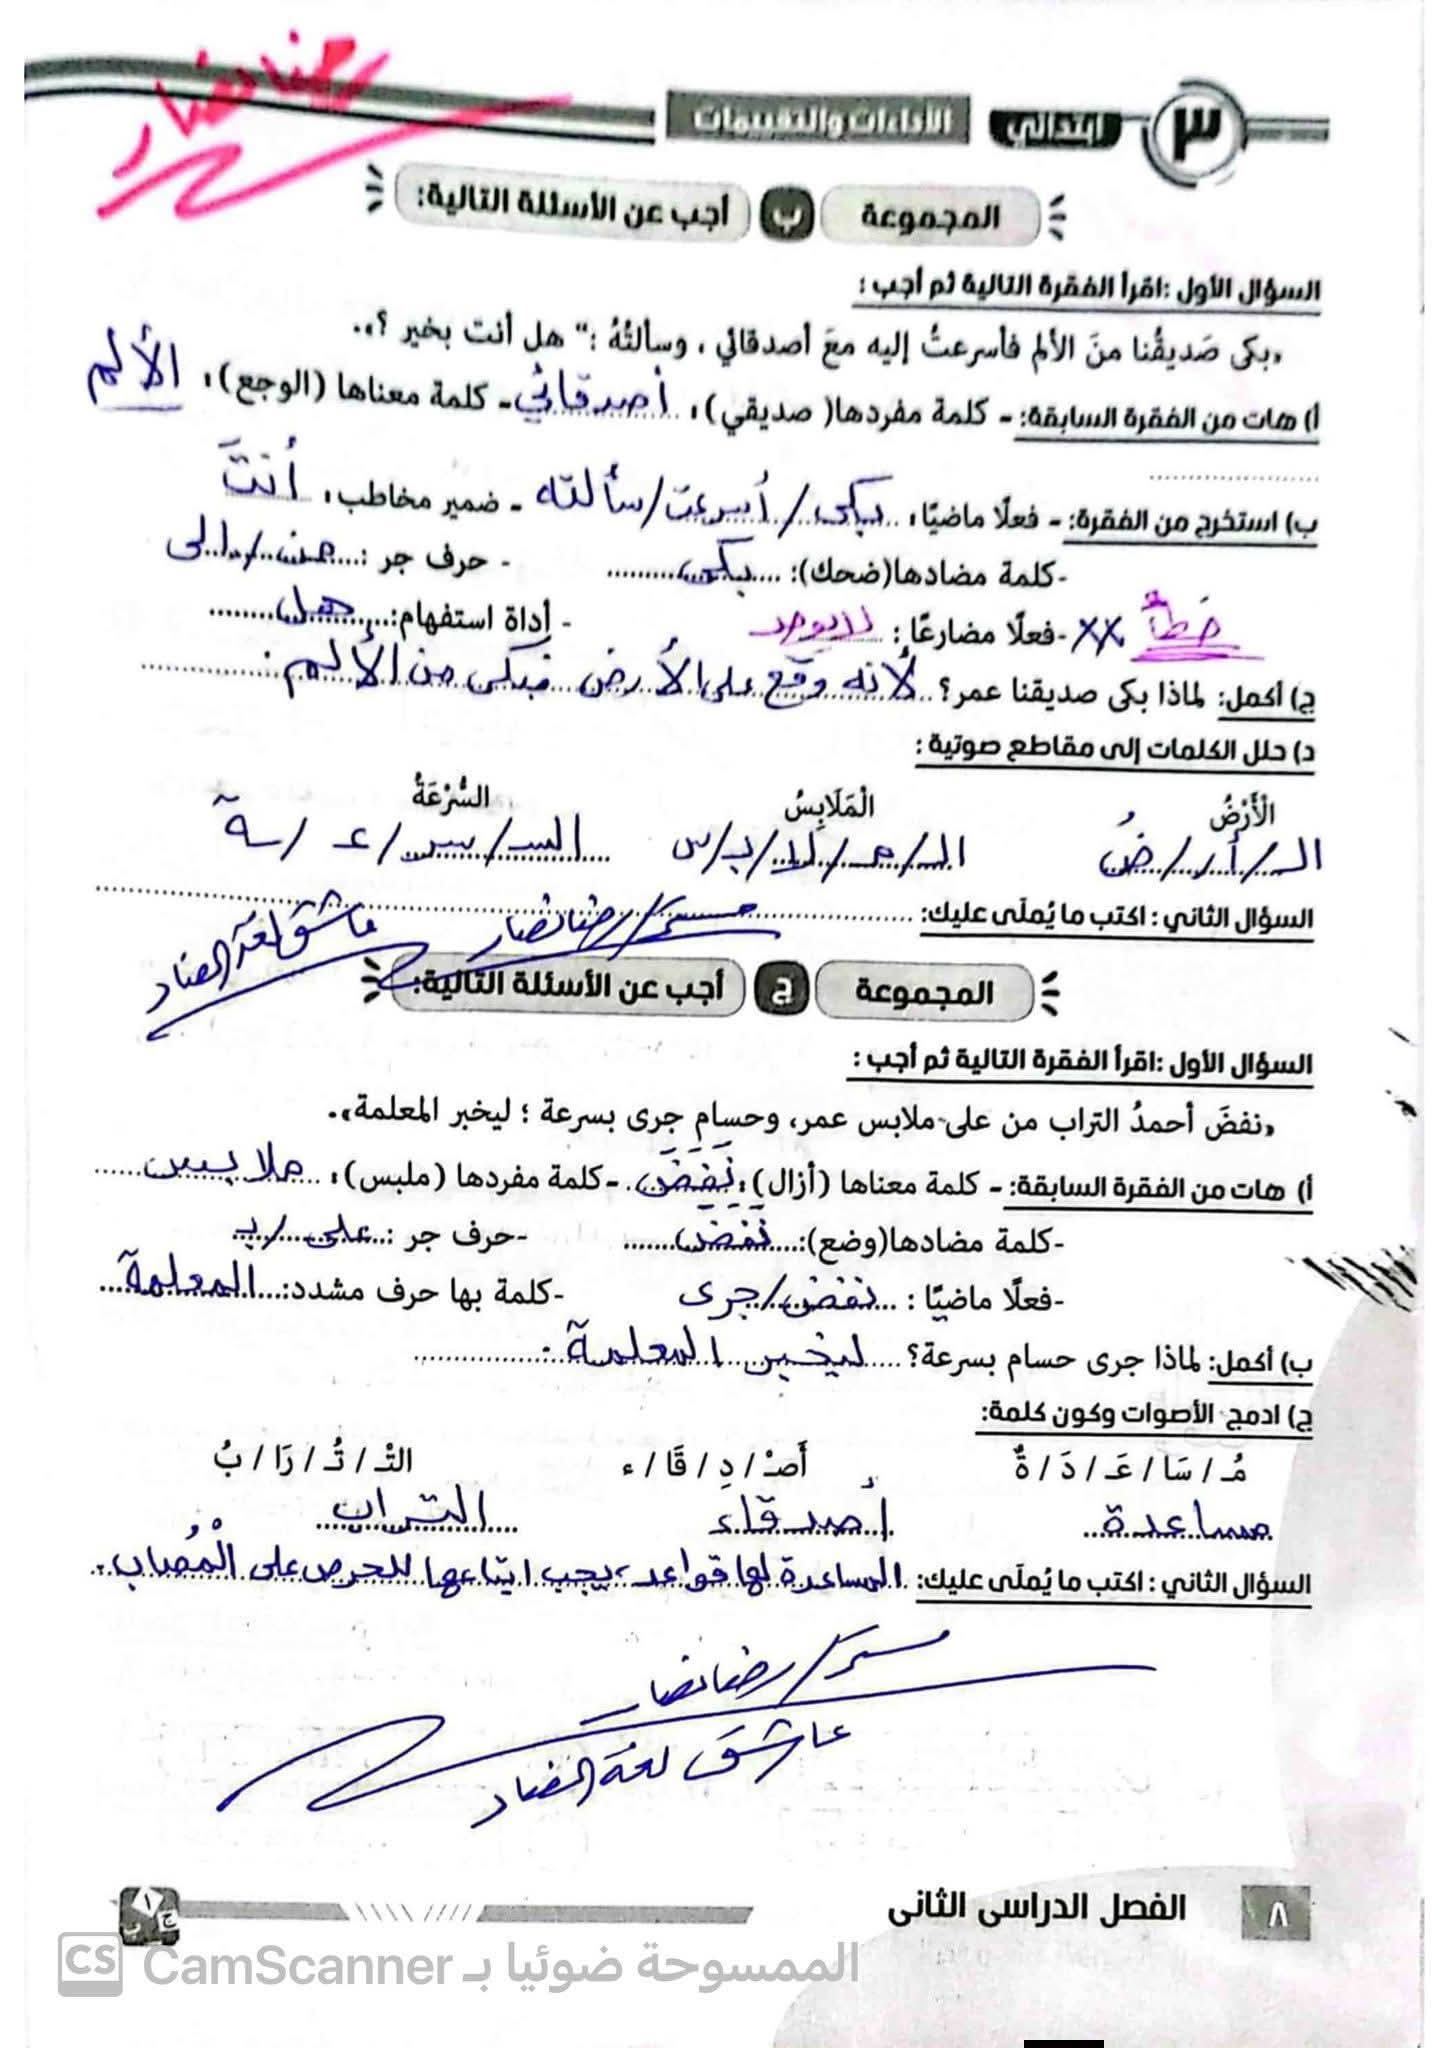 رضا نصار
٣ ابتدائي الأداءات والتقييمات
المجموعة ب أجب عن الأسئلة التالية:
السؤال الأول :اقرأ الفقرة التالية ثم أجب :
«بكى صَديقُنا منَ الألم فأسرعتُ إليه معَ أصدقائي ، وسألتُهُ :" هل أنت بخير ؟».
أ) هات من الفقرة السابقة: - كلمة مفردها( صديقي): أصدقائي - كلمة معناها (الوجع): الألم
ب) استخرج من الفقرة: - فعلًا ماضيًا: بكى / أسرعت / سألته - ضمير مخاطب: أنتَ
-كلمة مضادها(ضحك): بكى - حرف جر : من / إلى
خطأ xx -فعلًا مضارعًا : لا يوجد - أداة استفهام: هل
ج) أكمل: لماذا بكى صديقنا عمر؟ لأنه وقع على الأرض فبكى من الألم.
د) حلل الكلمات إلى مقاطع صوتية :
الْأَرْضُ الْمَلَابِسُ السُّرْعَةُ
الـ / أر / ضُ الـ / مـ / لا / بـ / س السـ / سر / عـ / ـة
السؤال الثاني : اكتب ما يُملَى عليك:
مستر / رضا نصار
عاشق لغة الضاد
المجموعة ج أجب عن الأسئلة التالية:
السؤال الأول :اقرأ الفقرة التالية ثم أجب :
«نفضَ أحمدُ التراب من على ملابس عمر، وحسام جرى بسرعة ؛ ليخبر المعلمة».
أ) هات من الفقرة السابقة: - كلمة معناها (أزال): نَفَضَ -كلمة مفردها (ملبس): ملابس
-كلمة مضادها(وضع): نَفَضَ -حرف جر : على / بـ
-فعلًا ماضيًا : نفض / جرى -كلمة بها حرف مشدد: المعلمة
ب) أكمل: لماذا جرى حسام بسرعة؟ ليخبر المعلمة.
ج) ادمج الأصوات وكون كلمة:
مُـ / سَا / عَـ / دَ / ةٌ أَصْـ / دِ / قَا / ء التْـ / تُـ / رَا / بُ
مساعدة أصدقاء التراب
السؤال الثاني : اكتب ما يُملَى عليك: المساعدة لها قواعد، يجب اتباعها للحرص على الْمُصاب.
مستر / رضا نصار
عاشق لغة الضاد
٨ الفصل الدراسى الثانى
أ ب ج
CS الممسوحة ضوئيا بـ CamScanner